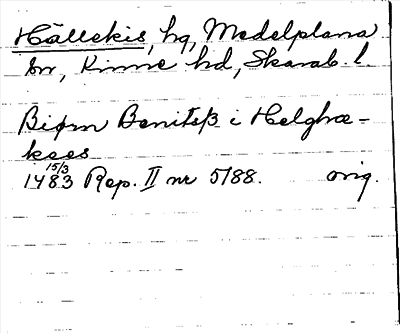 Hällekis, hg, Medelplana
sn, Kinne hd, Skarab. l.
Biørn Benitsß i Helghæ-
kees
15/3
1483 Rep. II nr 5188. orig.